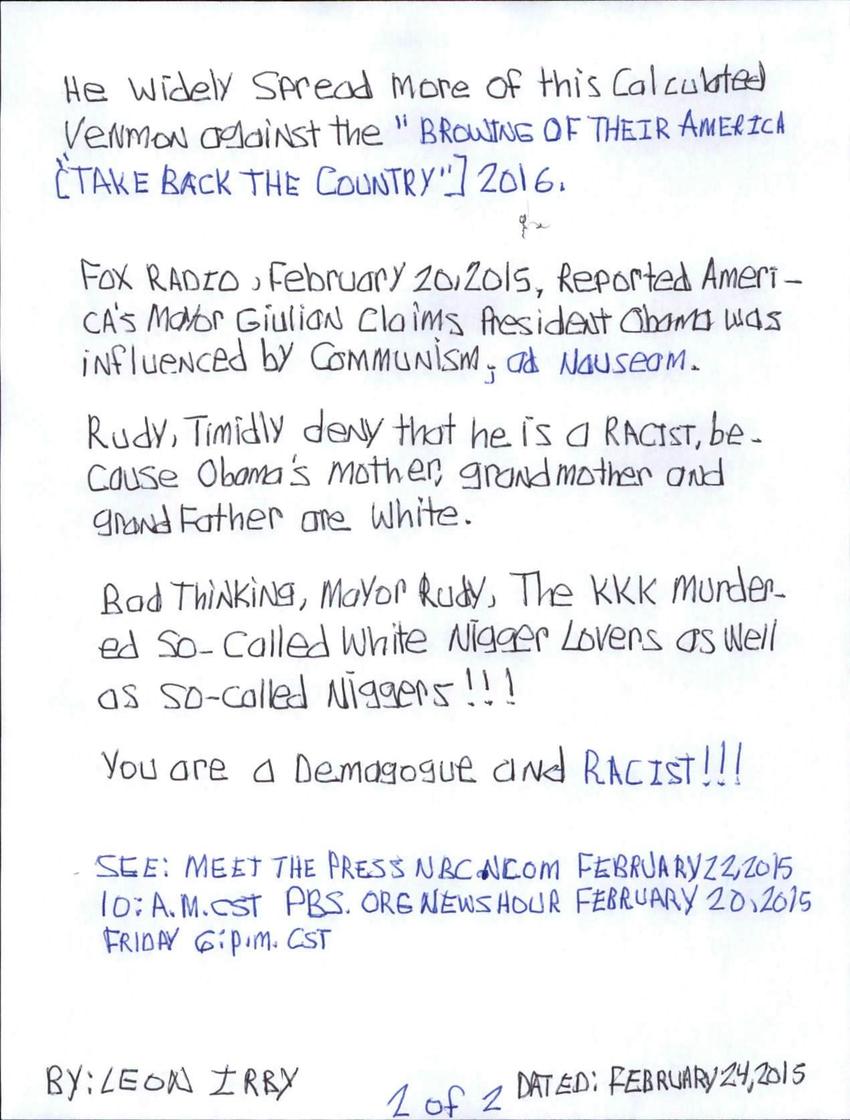 He Widely Spread More of this Calculated
Venmon against the "BROWING OF THEIR AMERICA
["TAKE BACK THE COUNTRY"] 2016.
Fox RADIO, February 20, 2015, Reported Ameri-
CA's Mayor Giulian Claims President Obama was
influenced by Communism; ad Nauseam.
Rudy, Timidly deny that he is a RACIST, be-
cause Obama's mother, grandmother and
grandFather are White.
Bad Thinking, Mayor Rudy, The KKK Murder-
ed So-Called White Nigger Lovers as well
as so-called Niggers!!!
You are a Demagogue and RACIST!!!
SEE: MEET THE PRESS NBC.NCOM FEBRUARY 22, 2015
10: A.M. CST PBS. ORG NEWSHOUR FEBRUARY 20, 2015
FRIDAY 6:p.m. CST
BY: LEON IRBY 2 of 2 DATED: FEBRUARY 24, 2015